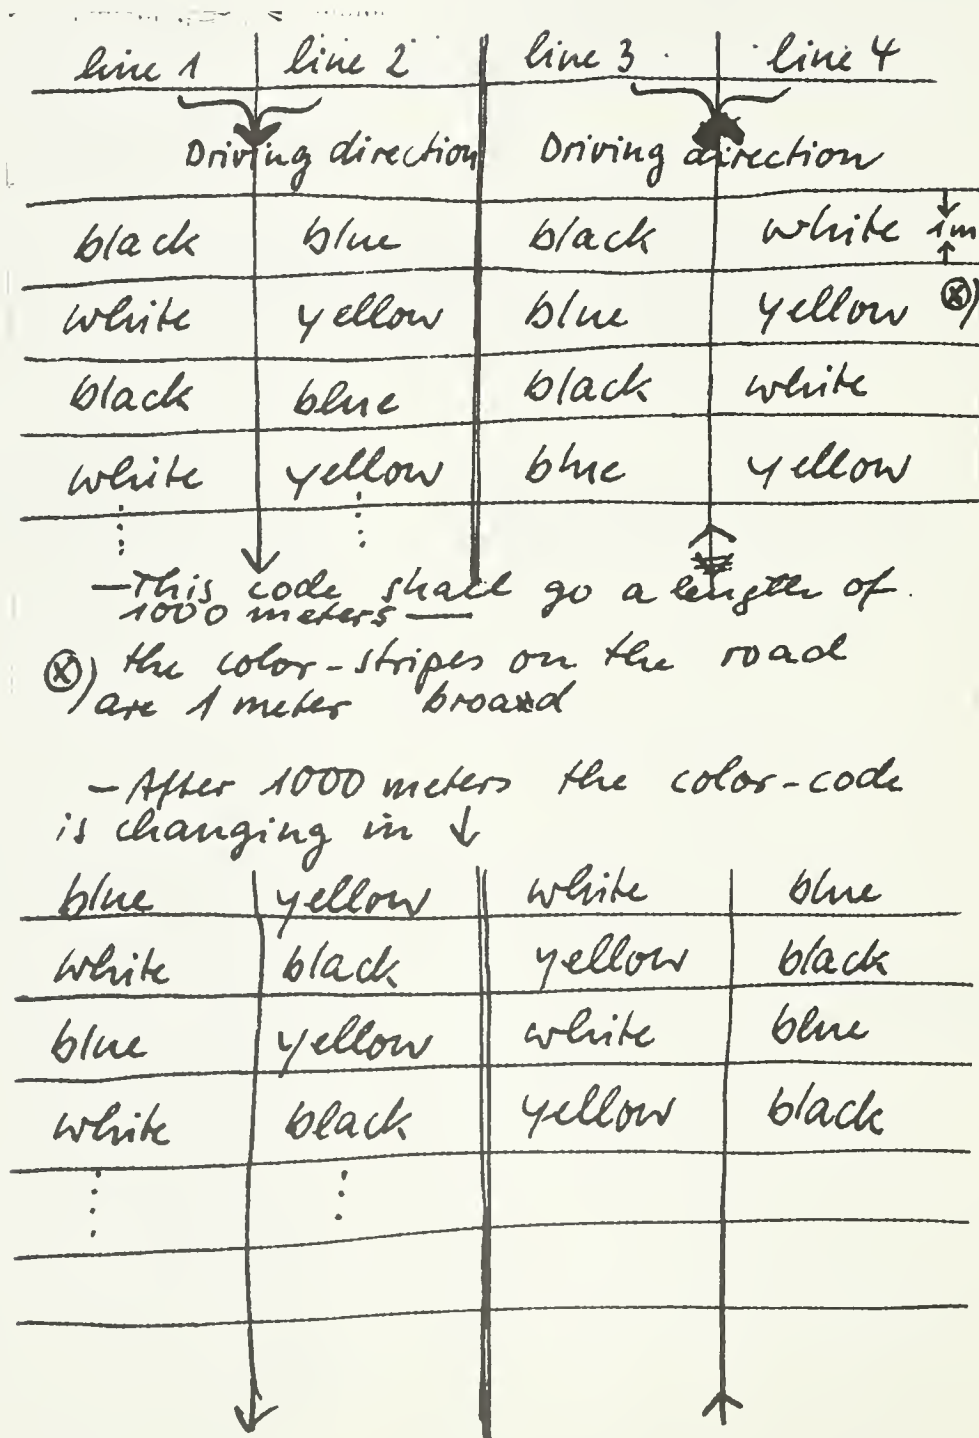 line 1 line 2 line 3 line 4
Driving direction Driving direction
black blue black white 1m
white yellow blue yellow (x))
black blue black white
white yellow blue yellow
— This code shall go a length of
1000 meters —
(x)) the color-stripes on the road
are 1 meter broad
— After 1000 meters the color-code
is changing in ↓
blue yellow white blue
white black yellow black
blue yellow white blue
white black yellow black